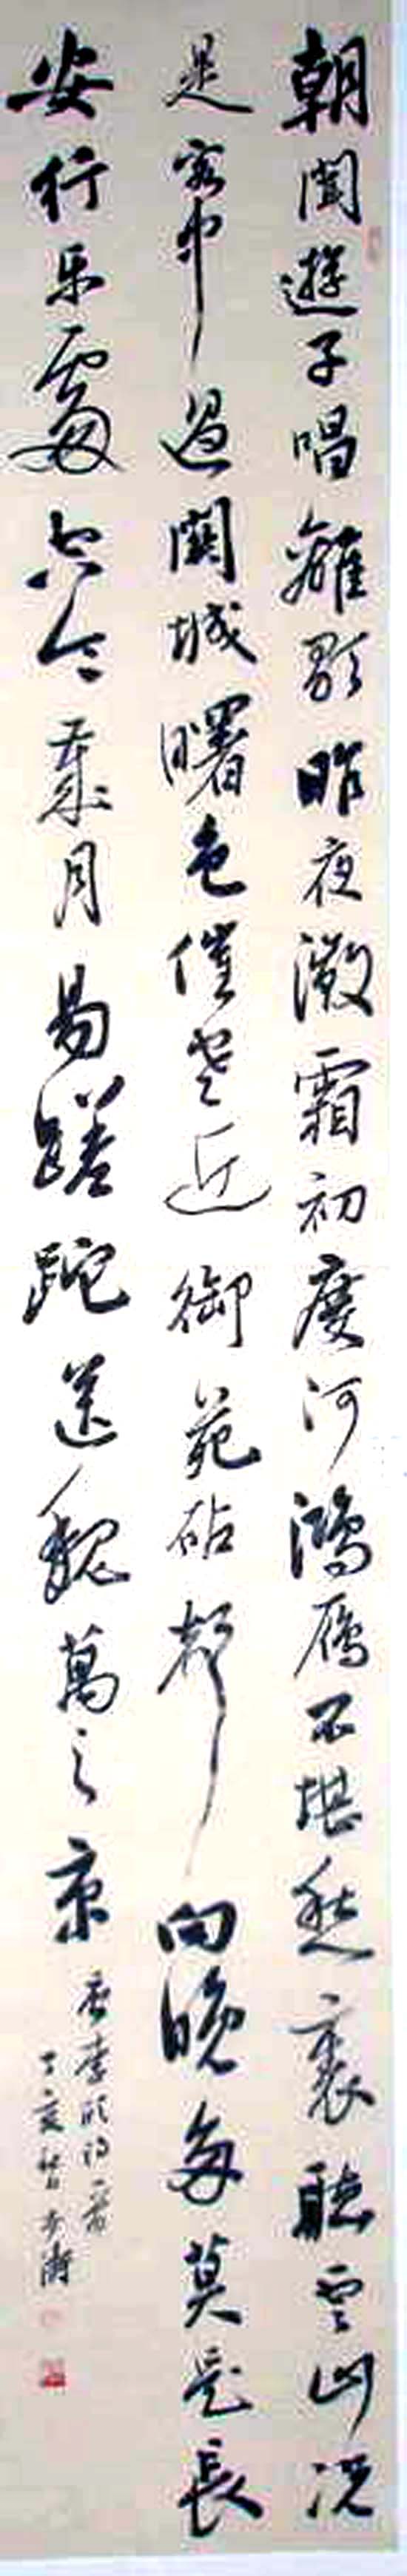 朝聞遊子唱離歌昨夜微霜初度河鴻雁不堪愁裏聽雲山况
是客中過關城曙色催寒近御苑砧聲向晚多莫是長
安行乐處空令歲月易蹉跎送魏萬之京
唐李頎詩一首
丁亥